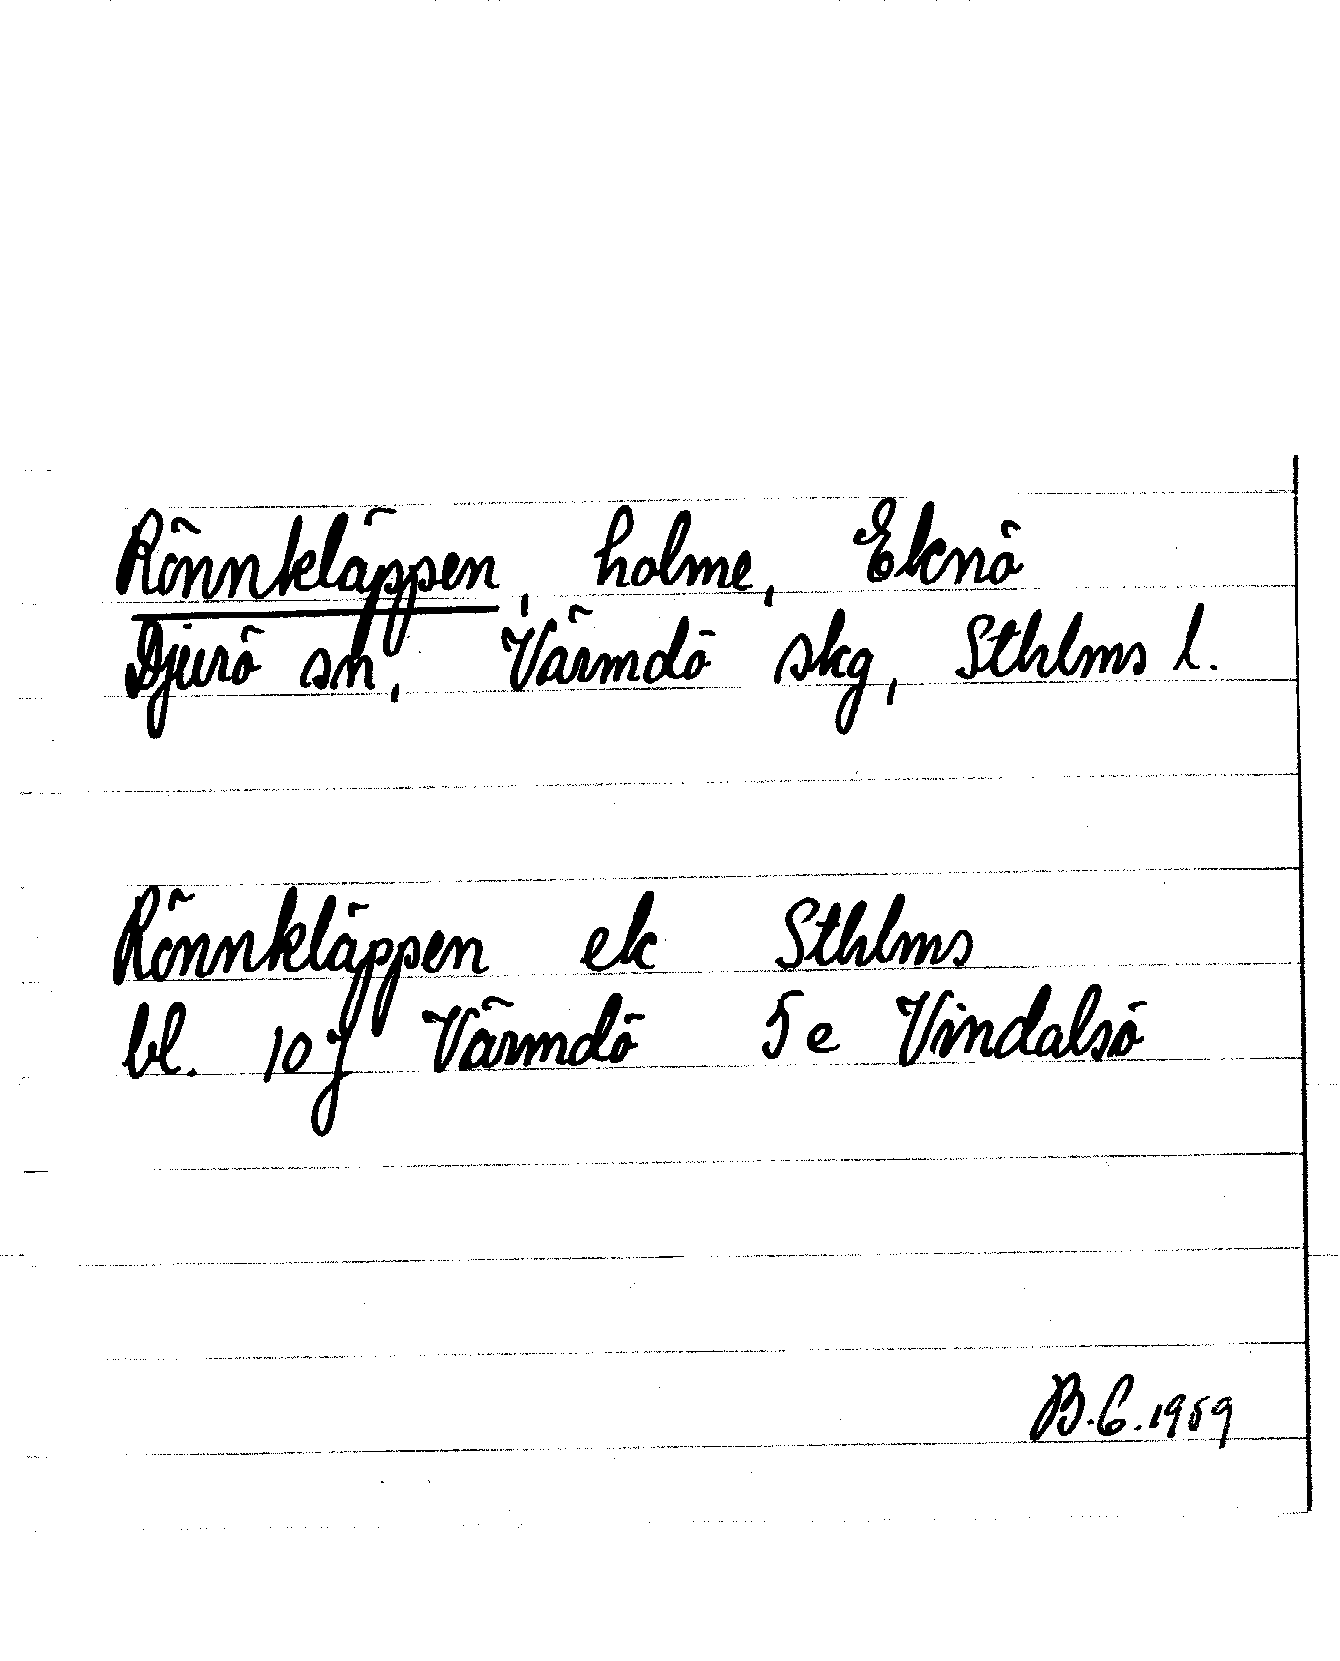 Rönnkläppen, holme, Eknö
Djurö sn, Värmdö skg, Sthlms l.
Rönnkläppen ek Sthlms
bl. 10 j Värmdö 5 e Vindalsö
B.G. 1959